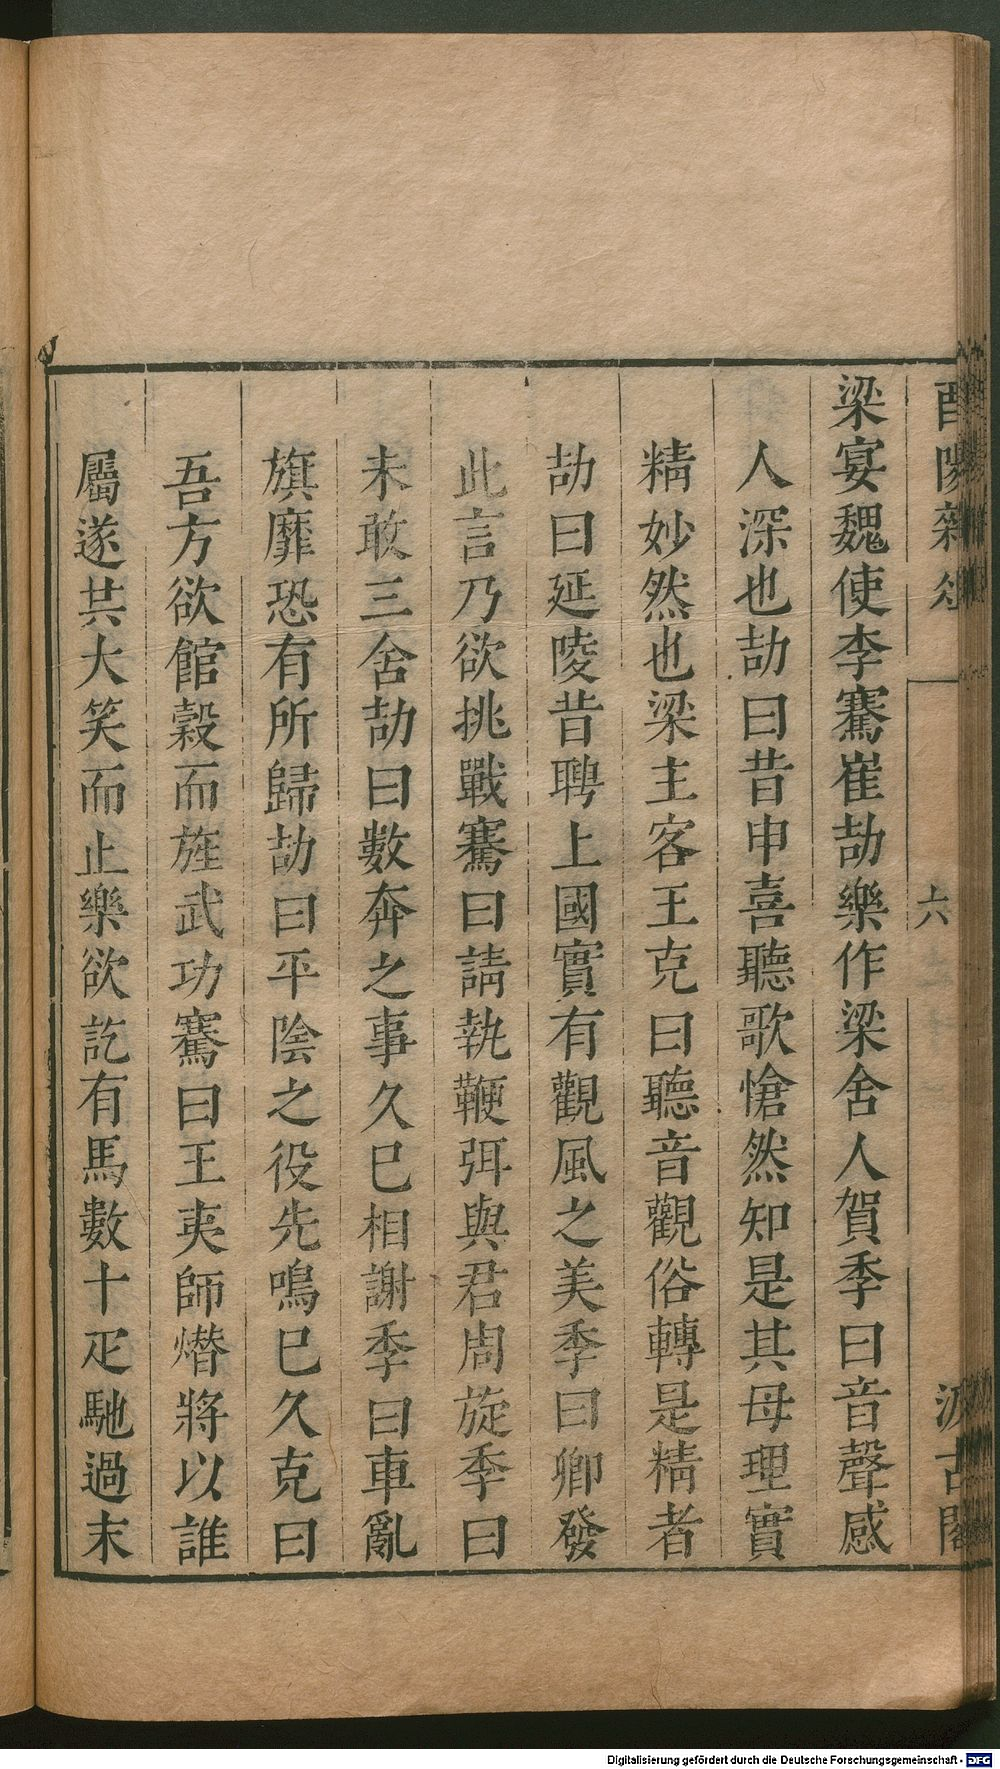 酉陽雜俎
六
汲古閣
梁宴魏使李騫崔劼樂作梁舍人賀季曰音聲感
人深也劼曰昔申喜聽歌愴然知是其母理實
精妙然也梁主客王克曰聽音觀俗轉是精者
劼曰延陵昔聘上國實有觀風之美季曰卿發
此言乃欲挑戰騫曰請執鞭弭與君周旋季曰
未敢三舍劼曰數奔之事久已相謝季曰車亂
旗靡恐有所歸劼曰平陰之役先鳴已久克曰
吾方欲館穀而旌武功騫曰王夷師熸將以誰
屬遂共大笑而止樂欲訖有馬數十疋馳過末
Digitalisierung gefördert durch die Deutsche Forschungsgemeinschaft - DFG